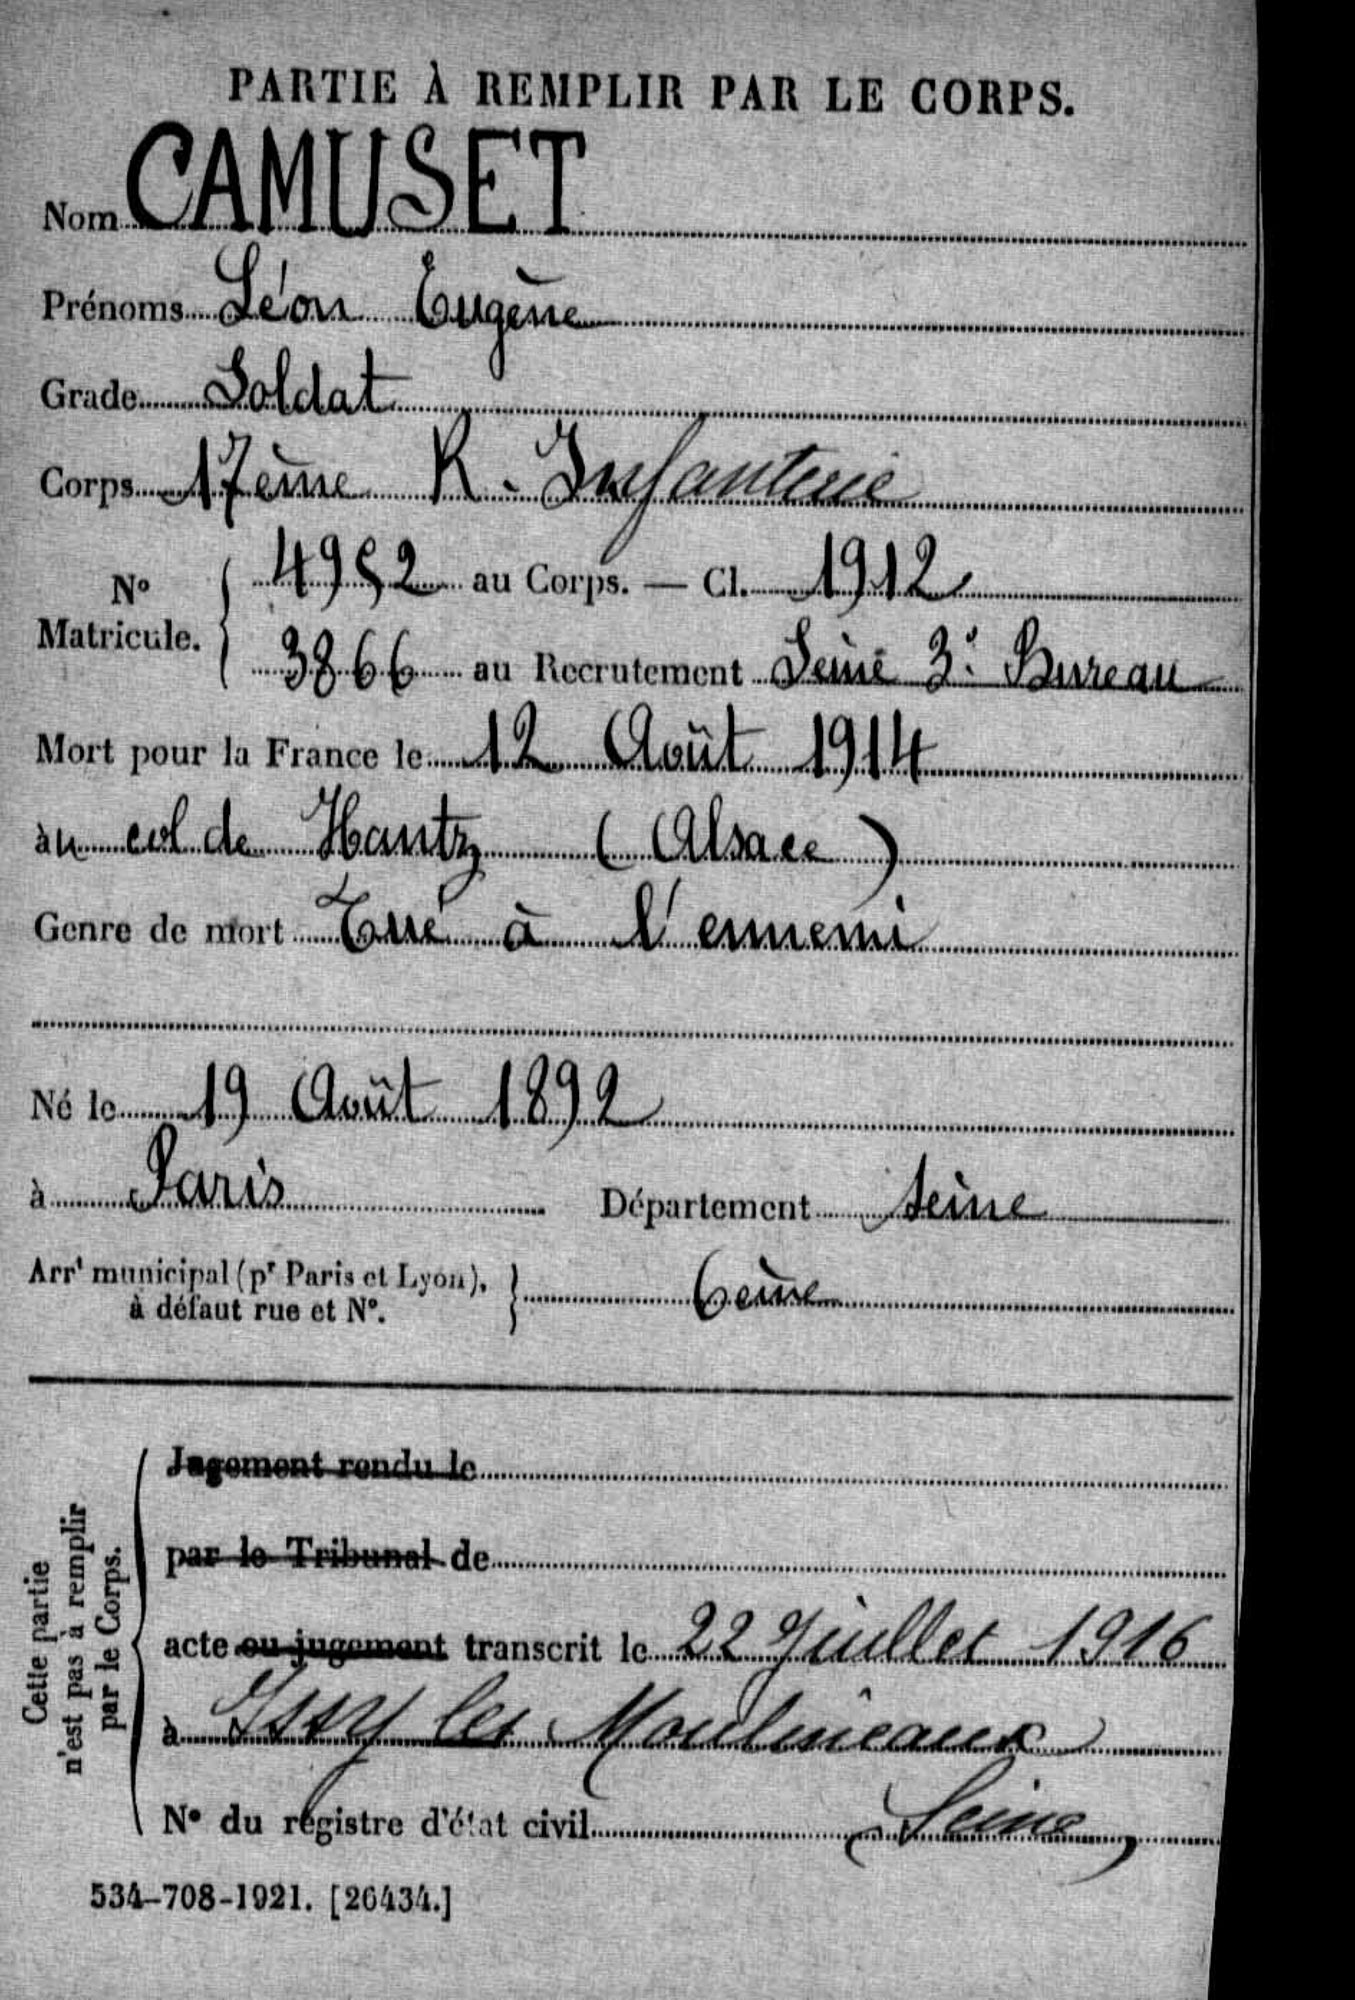 PARTIE À REMPLIR PAR LE CORPS.
Nom CAMUSET
Prénoms Léon Eugène
Grade Soldat
Corps 17ème R. Infanterie
No Matricule. { 4952 au Corps. — Cl. 1912
3866 au Recrutement Seine 3e Bureau
Mort pour la France le 12 Août 1914
au col de Hantz (Alsace)
Genre de mort Tué à l'ennemi
Né le 19 Août 1892
à Paris Département Seine
Arrt municipal (pr Paris et Lyon), à défaut rue et No. } 6ème
Cette partie n'est pas à remplir par le Corps.
Jugement rendu le
par le Tribunal de
acte ou jugement transcrit le 22 Juillet 1916
à Issy les Moulineaux
No du régistre d'état civil (Seine)
534-708-1921. [26434.]